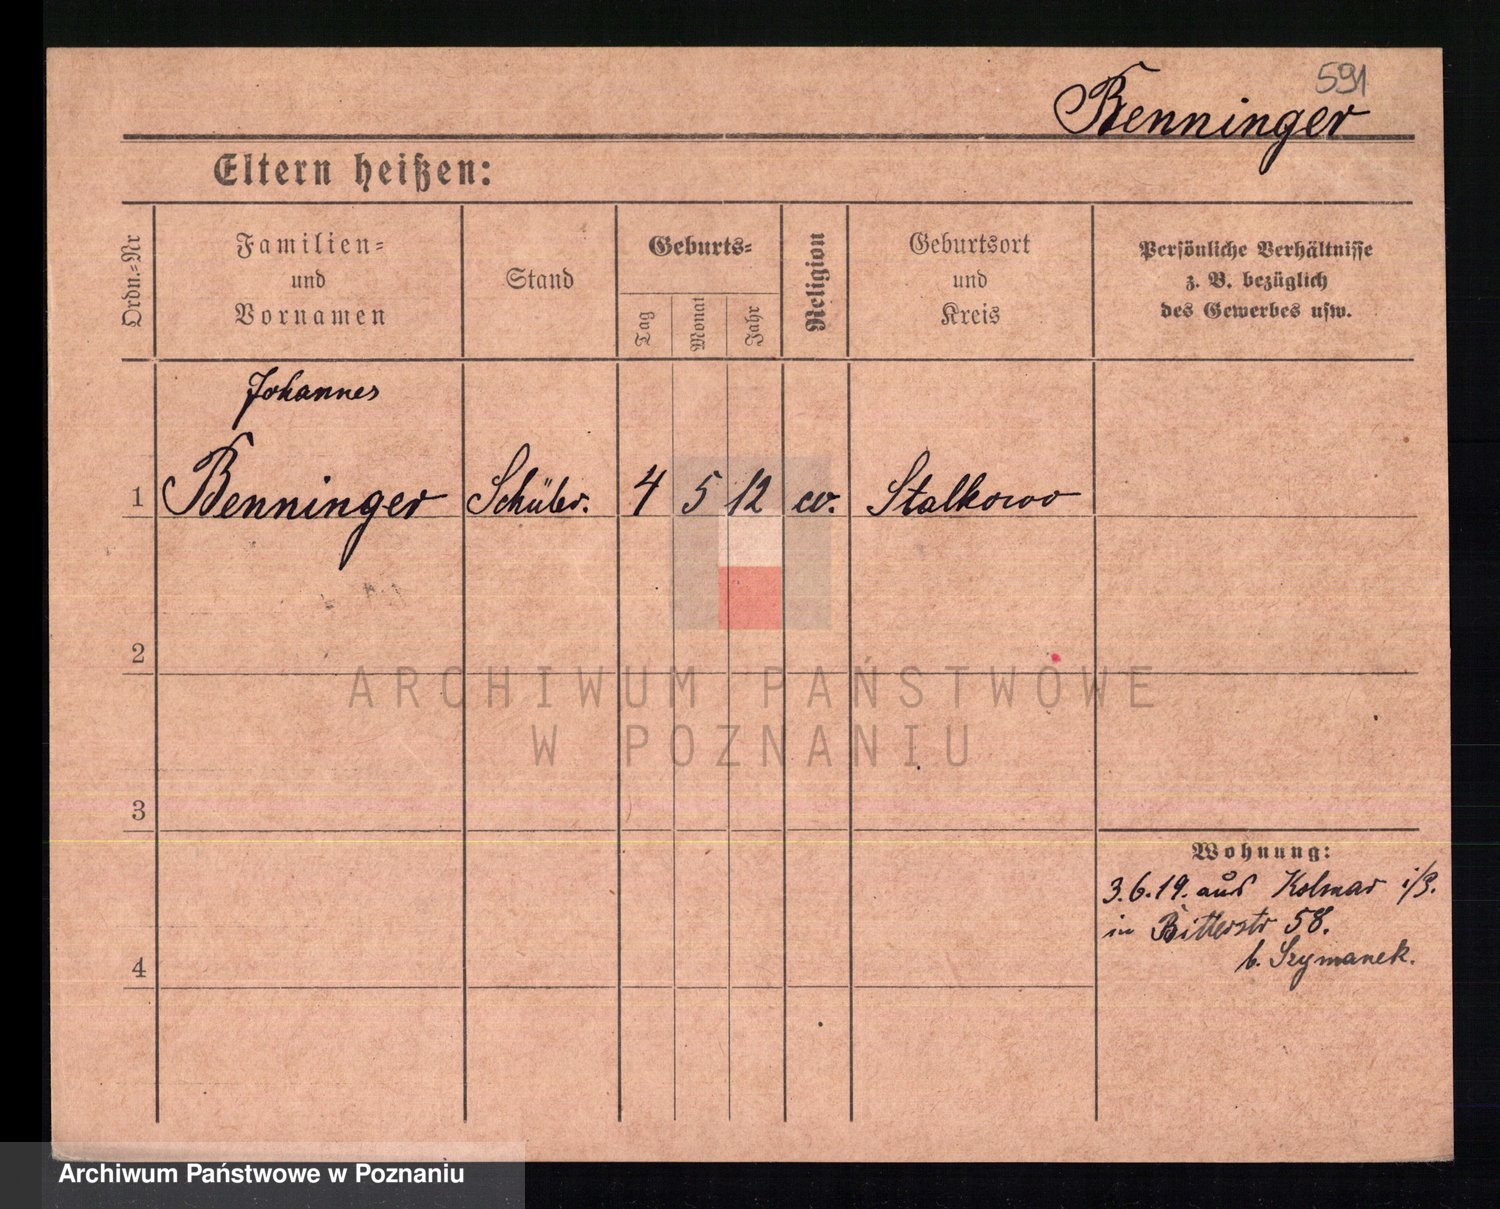 591
Benninger
Eltern heißen:
Ordn.=Nr
Familien=
und
Vornamen
Stand
Geburts=
Tag
Monat
Jahr
Religion
Geburtsort
und
Kreis
Persönliche Verhältnisse
z. B. bezüglich
des Gewerbes usw.
Johannes
1 Benninger Schüler. 4 5 12 ev. Stalkowo
2
ARCHIWUM PAŃSTWOWE
W POZNANIU
3
Wohnung:
3.6.19. aus Kolmar i/P.
in Bitterstr 58.
b. Szymanek.
4
Archiwum Państwowe w Poznaniu